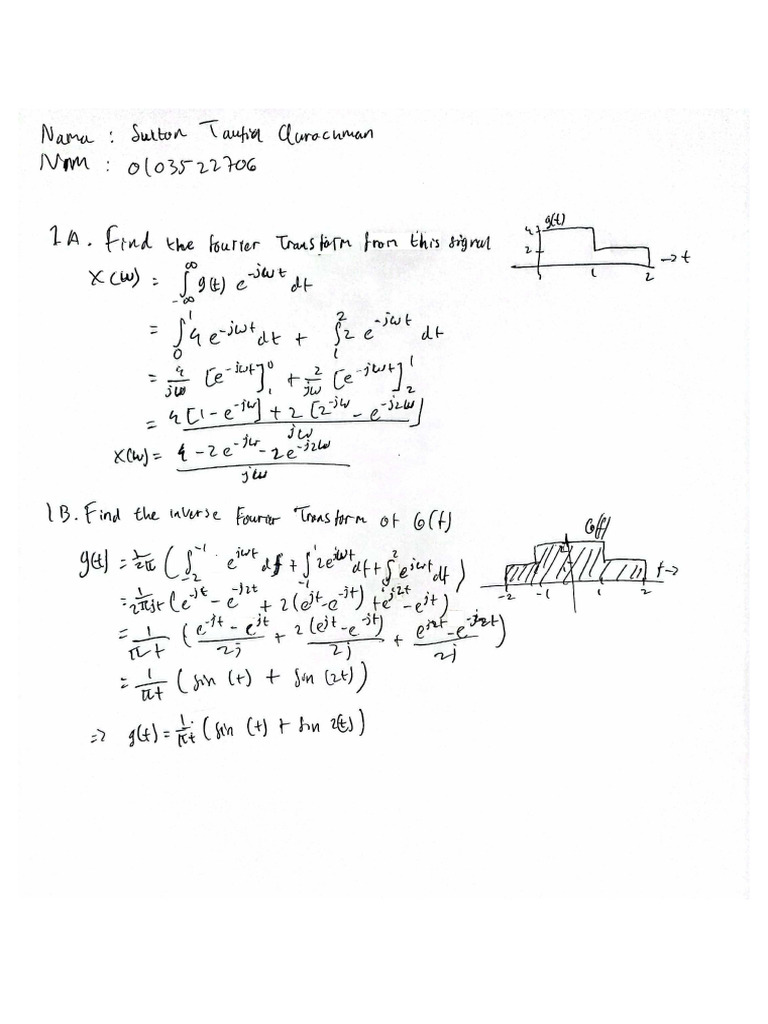 Nama : Sulton Taufiq Qurachman
NIM : 0103522706
1A. Find the fourier Transform from this signal
g(t)
4
2
1 2 → t
X(ω) = ∫_{-∞}^{∞} g(t) e^{-jωt} dt
= ∫_0^1 4 e^{-jωt} dt + ∫_1^2 2 e^{-jωt} dt
= 4/jω [e^{-jωt}]_1^0 + 2/jω [e^{-jωt}]_2^1
= (4[1 - e^{-jω}] + 2[2^{-jω} - e^{-j2ω}]) / jω
X(ω) = (4 - 2e^{-jω} - 2e^{-j2ω}) / jω
1B. Find the inverse Fourier Transform of G(f)
G(f)
-2 -1 1 2 f →
g(t) = 1/2π (∫_{-2}^{-1} e^{jωt} df + ∫_{-1}^1 2e^{jωt} df + ∫_1^2 e^{jωt} df)
= 1/2πjt (e^{-jt} - e^{-j2t} + 2(e^{jt} - e^{-jt}) + e^{j2t} - e^{jt})
= 1/πt ((e^{-jt} - e^{jt})/2j + 2(e^{jt} - e^{-jt})/2j + (e^{j2t} - e^{-j2t})/2j)
= 1/πt (sin (t) + sin (2t))
=> g(t) = 1/πt (sin (t) + sin 2(t))